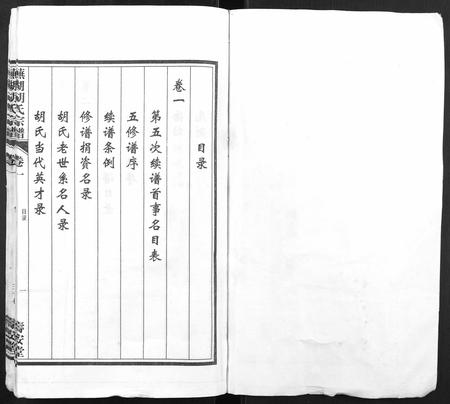 目录
卷一
第五次续谱首事名目表
五修谱序
续谱条例
修谱捐资名录
胡氏老世系名人录
胡氏当代英才录
蕪湖胡氏宗譜
卷一
目录
一